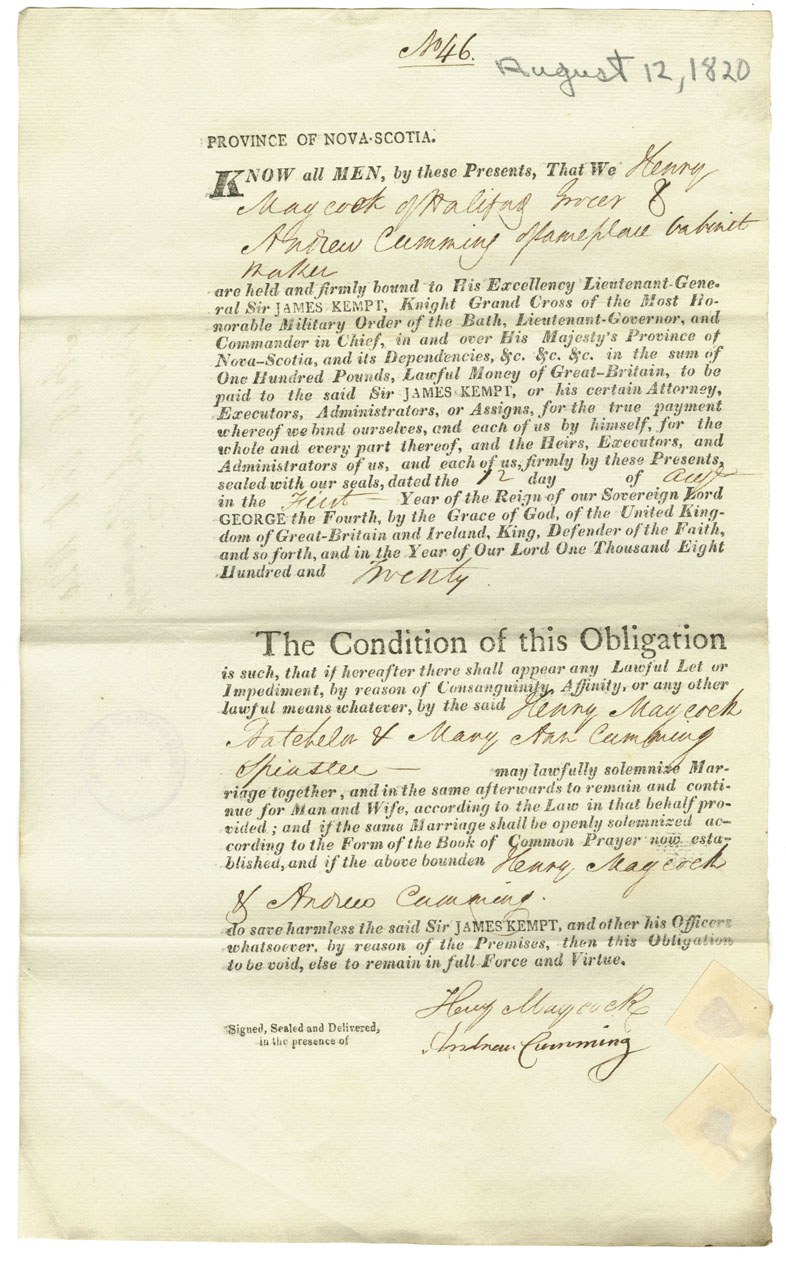 No 46.
August 12, 1820
PROVINCE OF NOVA-SCOTIA.
KNOW all MEN, by these Presents, That We Henry
Maycock of Halifax Grocer &
Andrew Cumming of same place Cabinet
Maker
are held and firmly bound to His Excellency Lieutenant-Gene-
ral Sir JAMES KEMPT, Knight Grand Cross of the Most Ho-
norable Military Order of the Bath, Lieutenant-Governor, and
Commander in Chief, in and over His Majesty's Province of
Nova-Scotia, and its Dependencies, &c. &c. &c. in the sum of
One Hundred Pounds, Lawful Money of Great-Britain, to be
paid to the said Sir JAMES KEMPT, or his certain Attorney,
Executors, Administrators, or Assigns, for the true payment
whereof we bind ourselves, and each of us by himself, for the
whole and every part thereof, and the Heirs, Executors, and
Administrators of us, and each of us, firmly by these Presents,
sealed with our seals, dated the 12 day of Augt
in the First Year of the Reign of our Sovereign Lord
GEORGE the Fourth, by the Grace of God, of the United King-
dom of Great-Britain and Ireland, King, Defender of the Faith,
and so forth, and in the Year of Our Lord One Thousand Eight
Hundred and Twenty.
The Condition of this Obligation
is such, that if hereafter there shall appear any Lawful Let or
Impediment, by reason of Consanguinity, Affinity, or any other
lawful means whatever, by the said Henry Maycock
Batchelor & Mary Ann Cumming
Spinster — may lawfully solemnize Mar-
riage together, and in the same afterwards to remain and conti-
nue for Man and Wife, according to the Law in that behalf pro-
vided; and if the same Marriage shall be openly solemnized ac-
cording to the Form of the Book of Common Prayer now esta-
blished, and if the above bounden Henry Maycock
& Andrew Cumming.
do save harmless the said Sir JAMES KEMPT, and other his Officers
whatsoever, by reason of the Premises, then this Obligation
to be void, else to remain in full Force and Virtue.
Henry Maycock
Signed, Sealed and Delivered,
in the presence of
Andrew Cumming